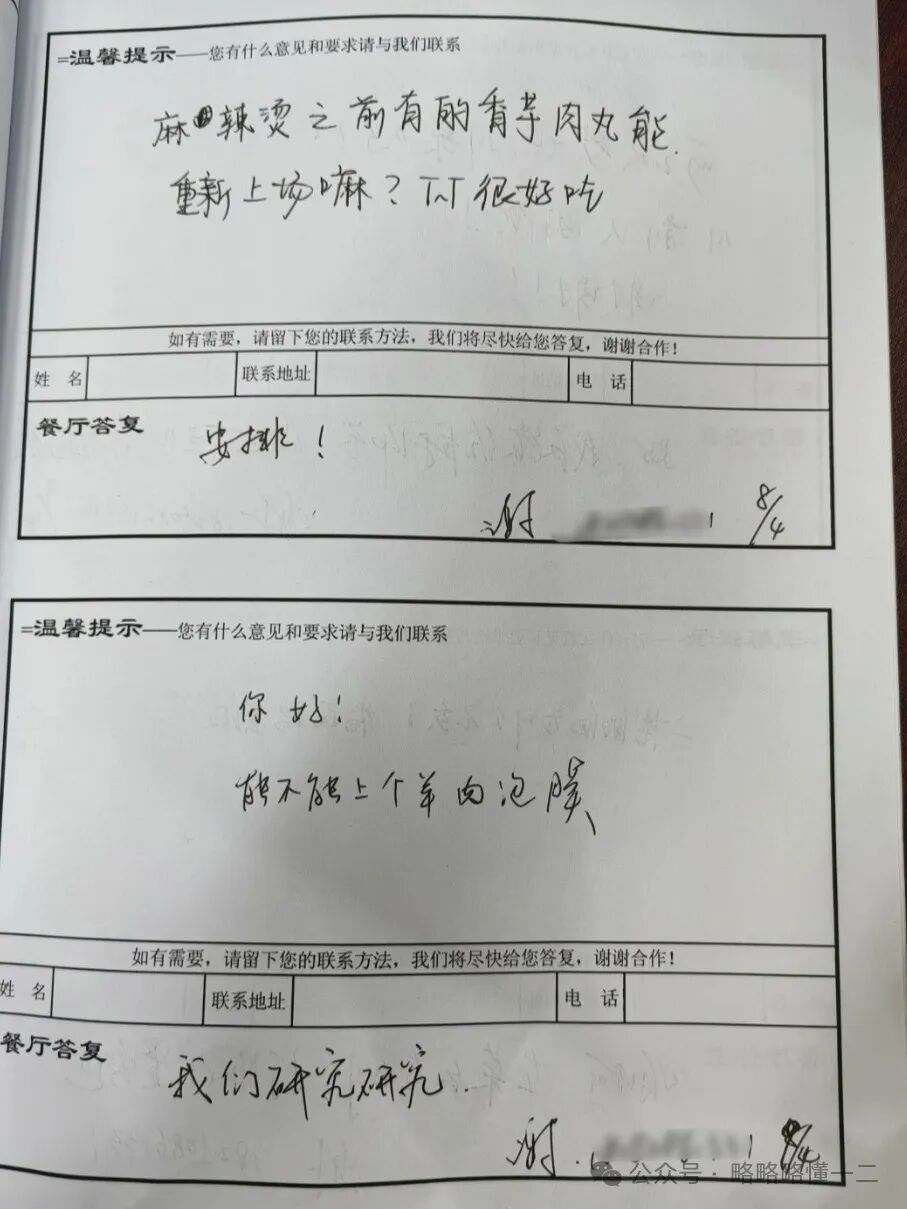 =温馨提示——您有什么意见和要求请与我们联系
麻辣烫之前有的香芋肉丸能
重新上场嘛？TNT很好吃
如有需要，请留下您的联系方法，我们将尽快给您答复，谢谢合作！
姓 名 联系地址 电 话
餐厅答复
安排！
谢 8/4
=温馨提示——您有什么意见和要求请与我们联系
你好！
能不能上个羊肉泡膜
如有需要，请留下您的联系方法，我们将尽快给您答复，谢谢合作！
姓 名 联系地址 电 话
餐厅答复
我们研究研究.
谢 8/4
公众号·略略略懂一二